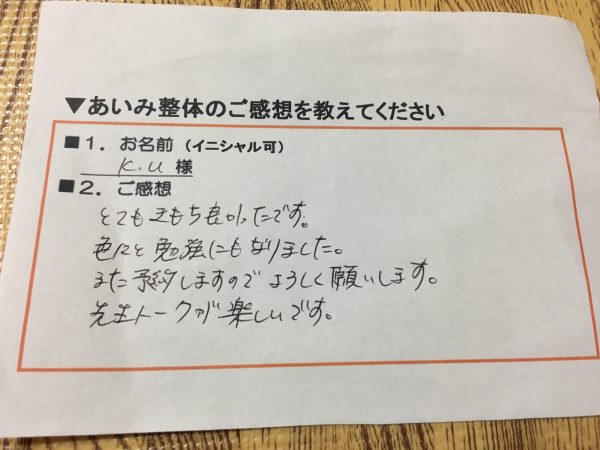 ▼あいみ整体のご感想を教えてください
■1．お名前（イニシャル可）
K.U 様
■2．ご感想
とてもきもち良かったです。
色々と勉強にもなりました。
また予約しますのでよろしく願いします。
先生トークが楽しいです。